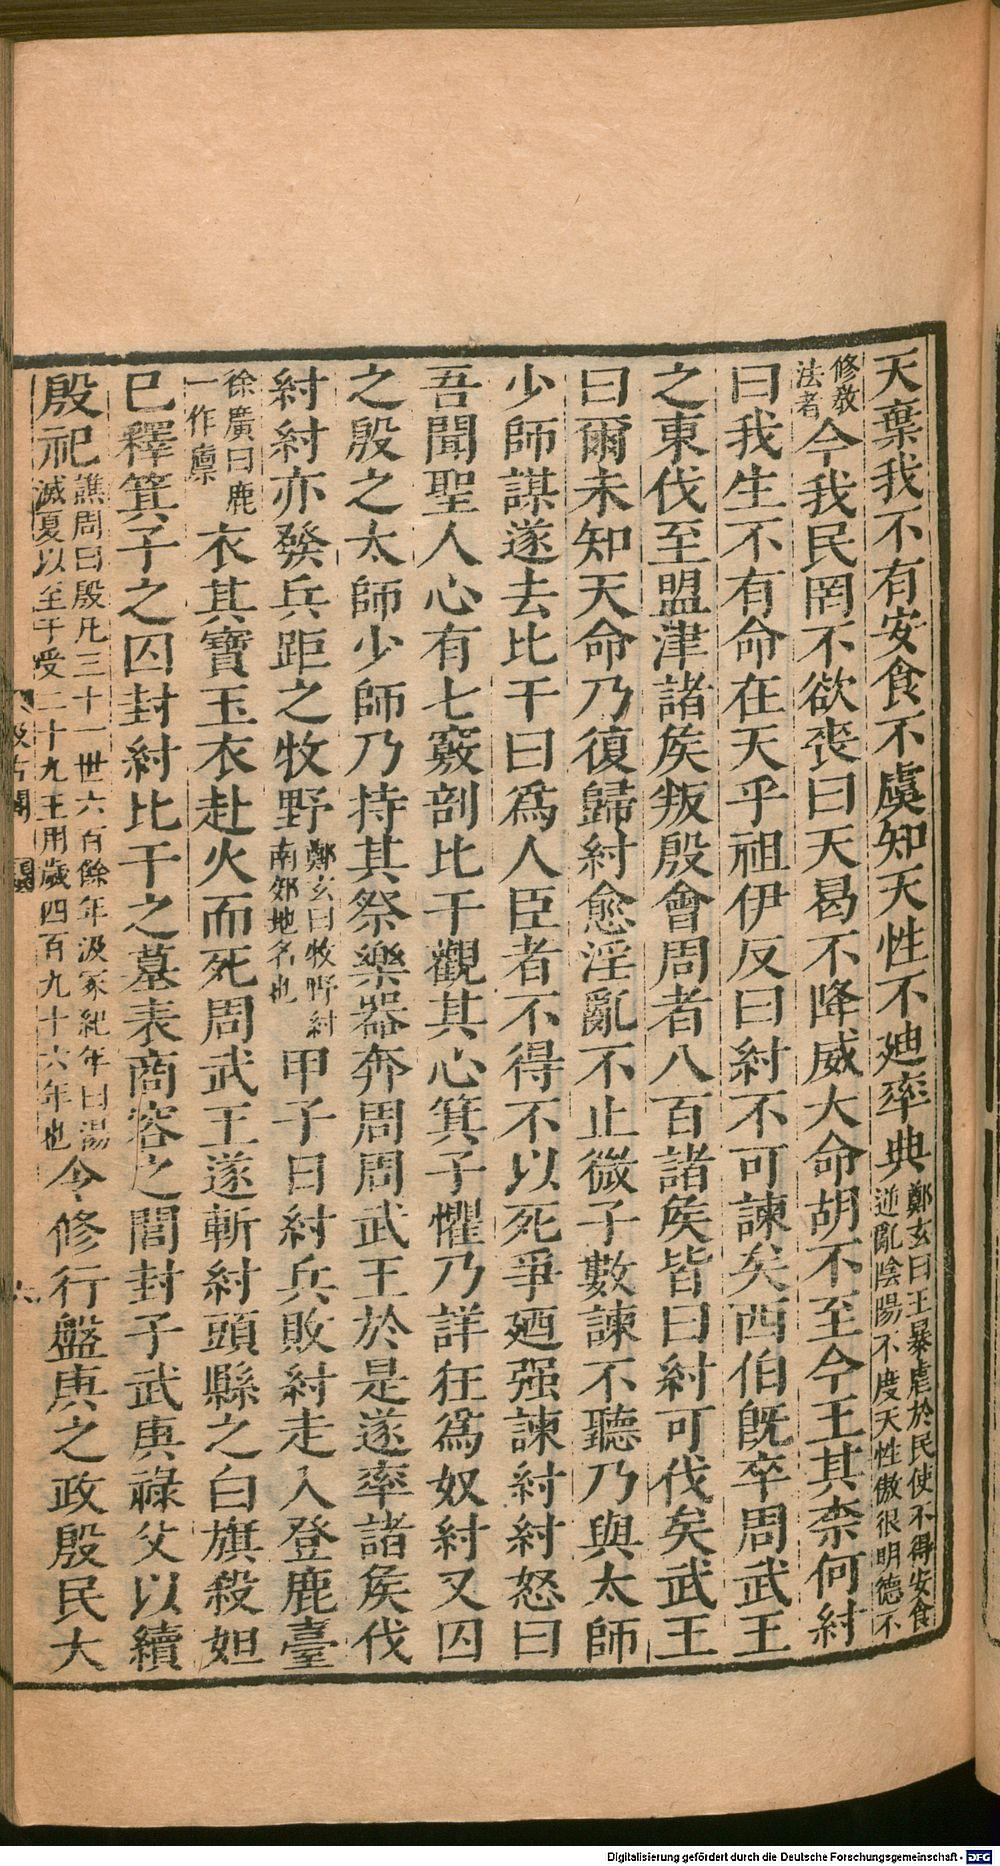 天棄我不有安食不虞知天性不廸率典鄭玄曰王暴虐於民使不得安食逆亂陰陽不度天性傲很明德不
修敎法者今我民罔不欲喪曰天曷不降威大命胡不至今王其柰何紂
曰我生不有命在天乎祖伊反曰紂不可諫矣西伯旣卒周武王
之東伐至盟津諸矦叛殷會周者八百諸矦皆曰紂可伐矣武王
曰爾未知天命乃復歸紂愈淫亂不止微子數諫不聽乃與太師
少師謀遂去比干曰爲人臣者不得不以死爭廼强諫紂紂怒曰
吾聞聖人心有七竅剖比干觀其心箕子懼乃詳狂爲奴紂又囚
之殷之太師少師乃持其祭樂器奔周周武王於是遂率諸矦伐
紂紂亦發兵距之牧野鄭玄曰牧野紂南郊地名也甲子日紂兵敗紂走入登鹿臺
徐廣曰鹿一作廩衣其寶玉衣赴火而死周武王遂斬紂頭縣之白旗殺妲
已釋箕子之囚封紂比干之墓表商容之閭封子武庚祿父以續
殷祀譙周曰殷凡三十一世六百餘年汲冢紀年曰湯滅夏以至于受二十九王用歲四百九十六年也令修行盤庚之政殷民大
六
Digitalisierung gefördert durch die Deutsche Forschungsgemeinschaft - DFG